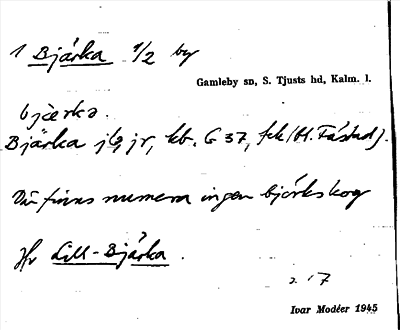 1 Bjärka 1/2 by
Gamleby sn, S. Tjusts hd, Kalm. l.
bjärka.
Bjärka jb, jr, kb. G 37, fck (H. Fåstad).
Där finns numera ingen björkskog
Jfr Lill-Bjärka.
17
Ivar Modéer 1945